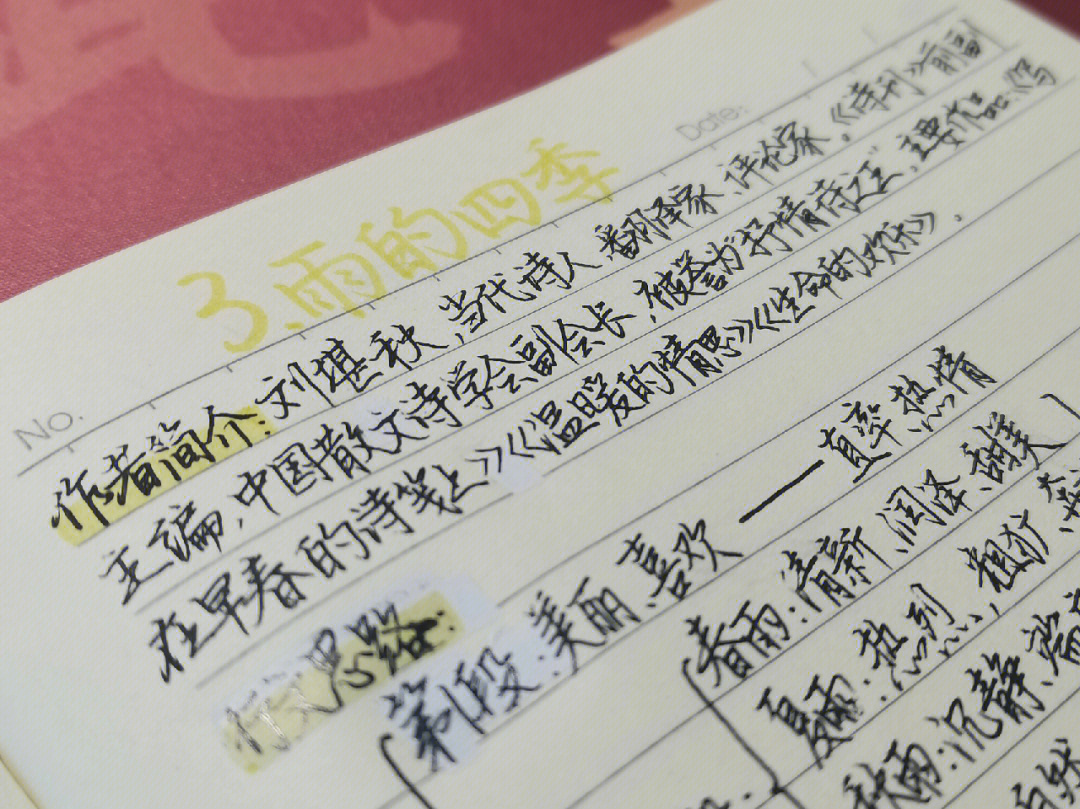 Date:
3、雨的四季
No.
作者简介:刘堪秋,当代诗人、翻译家、评论家,《诗刊》前副
主编,中国散文诗学会副会长,被誉为"抒情诗之王",主要作品:《写
在早春的诗笺上》《温暖的情思》《生命的欢乐》.
行文思路:
第1段:美丽、喜欢——直率热情
春雨:清新、润泽、甜美
夏雨:热烈、粗犷、
秋雨:沉静、